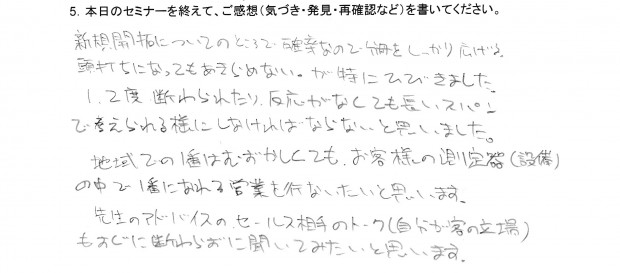 5. 本日のセミナーを終えて、ご感想(気づき・発見・再確認など)を書いてください。
新規開拓についてのところで確率なので分母をしっかり広げる、
頭打ちになってもあきらめない。が特にひびきました。
1、2度断わられたり、反応がなくても長いスパン
で考えられる様にしなければならないと思いました。
地域での1番はむずかしくても、お客様の測定器(設備)
の中で1番になれる営業を行ないたいと思います。
先生のアドバイスの、セールス相手のトーク(自分が客の立場)
もすぐに断わらずに聞いてみたいと思います。